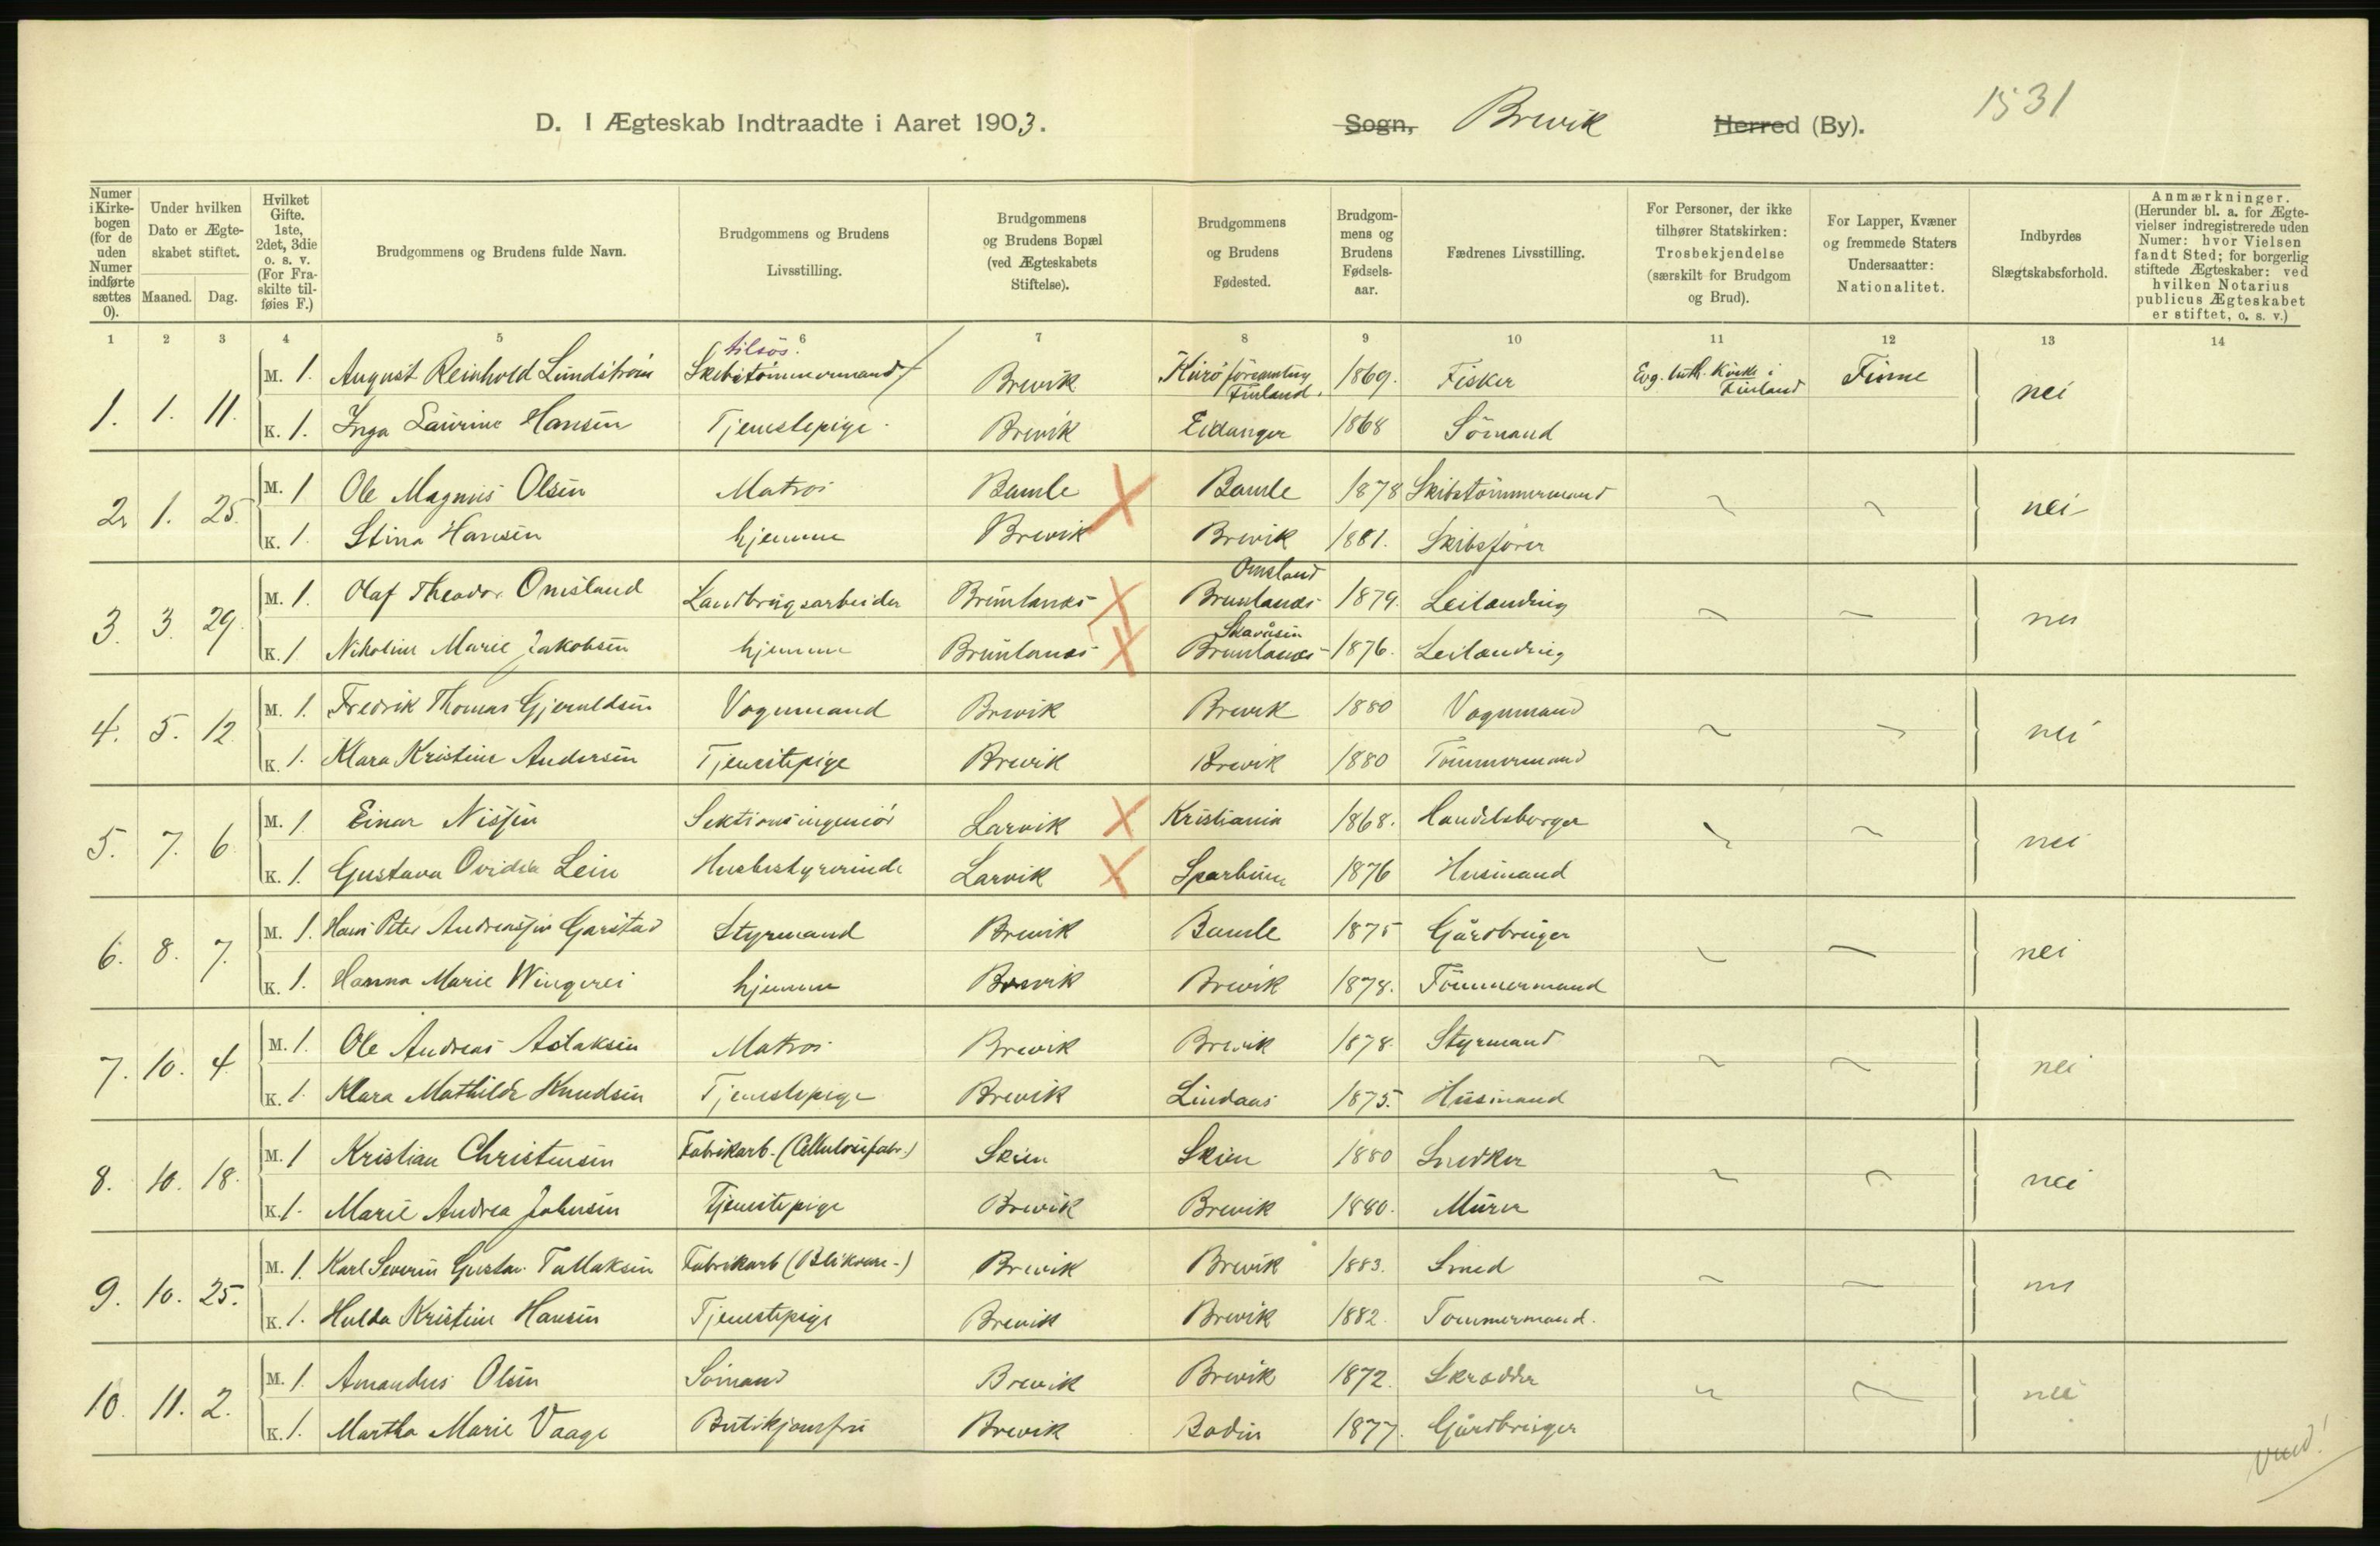 1531
D. I Ægteskab Indtraadte i Aaret 1903.
Sogn, Brevik Herred (By).
Numer i Kirke-bogen (for de uden Numer indførte sættes 0).
Under hvilken Dato er Ægte-skabet stiftet.
Maaned. Dag.
Hvilket Gifte. 1ste, 2det, 3die o. s. v. (For Fra-skilte til-føies F.)
Brudgommens og Brudens fulde Navn.
Brudgommens og Brudens Livsstilling.
Brudgommens og Brudens Bopæl (ved Ægteskabets Stiftelse).
Brudgommens og Brudens Fødested.
Brudgom-mens og Brudens Fødsels-aar.
Fædrenes Livsstilling.
For Personer, der ikke tilhører Statskirken: Trosbekjendelse (særskilt for Brudgom og Brud).
For Lapper, Kvæner og fremmede Staters Undersaatter: Nationalitet.
Indbyrdes Slægtskabsforhold.
Anmærkninger. (Herunder bl. a. for Ægte-vielser indregistrerede uden Numer: hvor Vielsen fandt Sted; for borgerlig stiftede Ægteskaber: ved hvilken Notarius publicus Ægteskabet er stiftet, o. s. v.)
1 2 3 4 5 6 7 8 9 10 11 12 13 14
tilsøs.
1. 1. 11. M. 1. August Reinhold Lundström Skibstömmermand Brevik Kirö församling Finland. 1869. Fisker Evg. luth. Kirke i Finland Finne nei
K. 1. Inga Laurine Hansen Tjenestepige Brevik Eidanger 1868 Sömand
2. 1. 25. M. 1 Ole Magnus Olsen Matros Bamle Bamle 1878 Skibstömmermand nei
K. 1. Stina Hansen hjemme Brevik Brevik 1881. Skibsförer
Omsland
3. 3. 29. M. 1. Olaf Theodor Omsland Landbrugsarbeider Brunlanæs Brunlanæs 1879. Leilænding nei
Skavåsen
K. 1 Nikoline Marie Jakobsen hjemme Brunlanæs Brunlanæs 1876. Leilænding
4. 5. 12 M. 1. Fredrik Thomas Gjeruldsen Vognmand Brevik Brevik 1880 Vognmand nei
K. 1. Klara Kristine Andersen Tjenestepige Brevik Brevik 1880 Tömmermand
5. 7. 6 M. 1 Einar Nissen Sektionsingeniör Larvik Kristiania 1868. Handelsborger nei
K. 1. Gustava Ovidia Lein Husbestyrerinde Larvik Sparbuen 1876 Husmand
6. 8. 7. M. 1. Hans Peter Andreassen Garstad Styrmand Brevik Bamle 1875 Gårdbruger nei
K. 1. Hanna Marie Wingerei hjemme Brevik Brevik 1878. Tömmermand
7. 10. 4 M. 1. Ole Andreas Aslaksen Matros Brevik Brevik 1878. Styrmand nei
K. 1. Klara Mathilde Knudsen Tjenestepige Brevik Lindaas 1875. Husmand
8. 10. 18. M. 1 Kristian Christensen Fabrikarb. (Cellulosefabr.) Skien Skien 1880 Snedker nei
K. 1. Marie Andrea Johnsen Tjenestepige Brevik Brevik 1880. Murer
9. 10. 25. M. 1. Karl Severin Gustav Tallaksen Fabrikarb (Blikvare-) Brevik Brevik 1883. Smed nei
K. 1. Hulda Kristine Hansen Tjenestepige Brevik Brevik 1882. Tömmermand.
10. 11. 2. M. 1. Amandus Olsen Sömand Brevik Brevik 1872. Skrædder nei
K. 1. Martha Marie Vaage Butikjomfru Brevik Bodin 1877. Gårdbruger
vend!